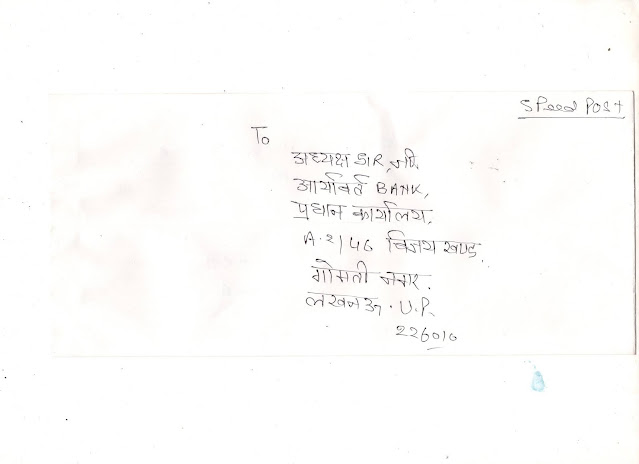 SPeed POST
To
अध्यक्ष SIR, जी.
आर्यावर्त BANK,
प्रधान कार्यालय,
A-2/46 विजय खण्ड.
गोमती नगर.
लखनऊ. U.P.
226010